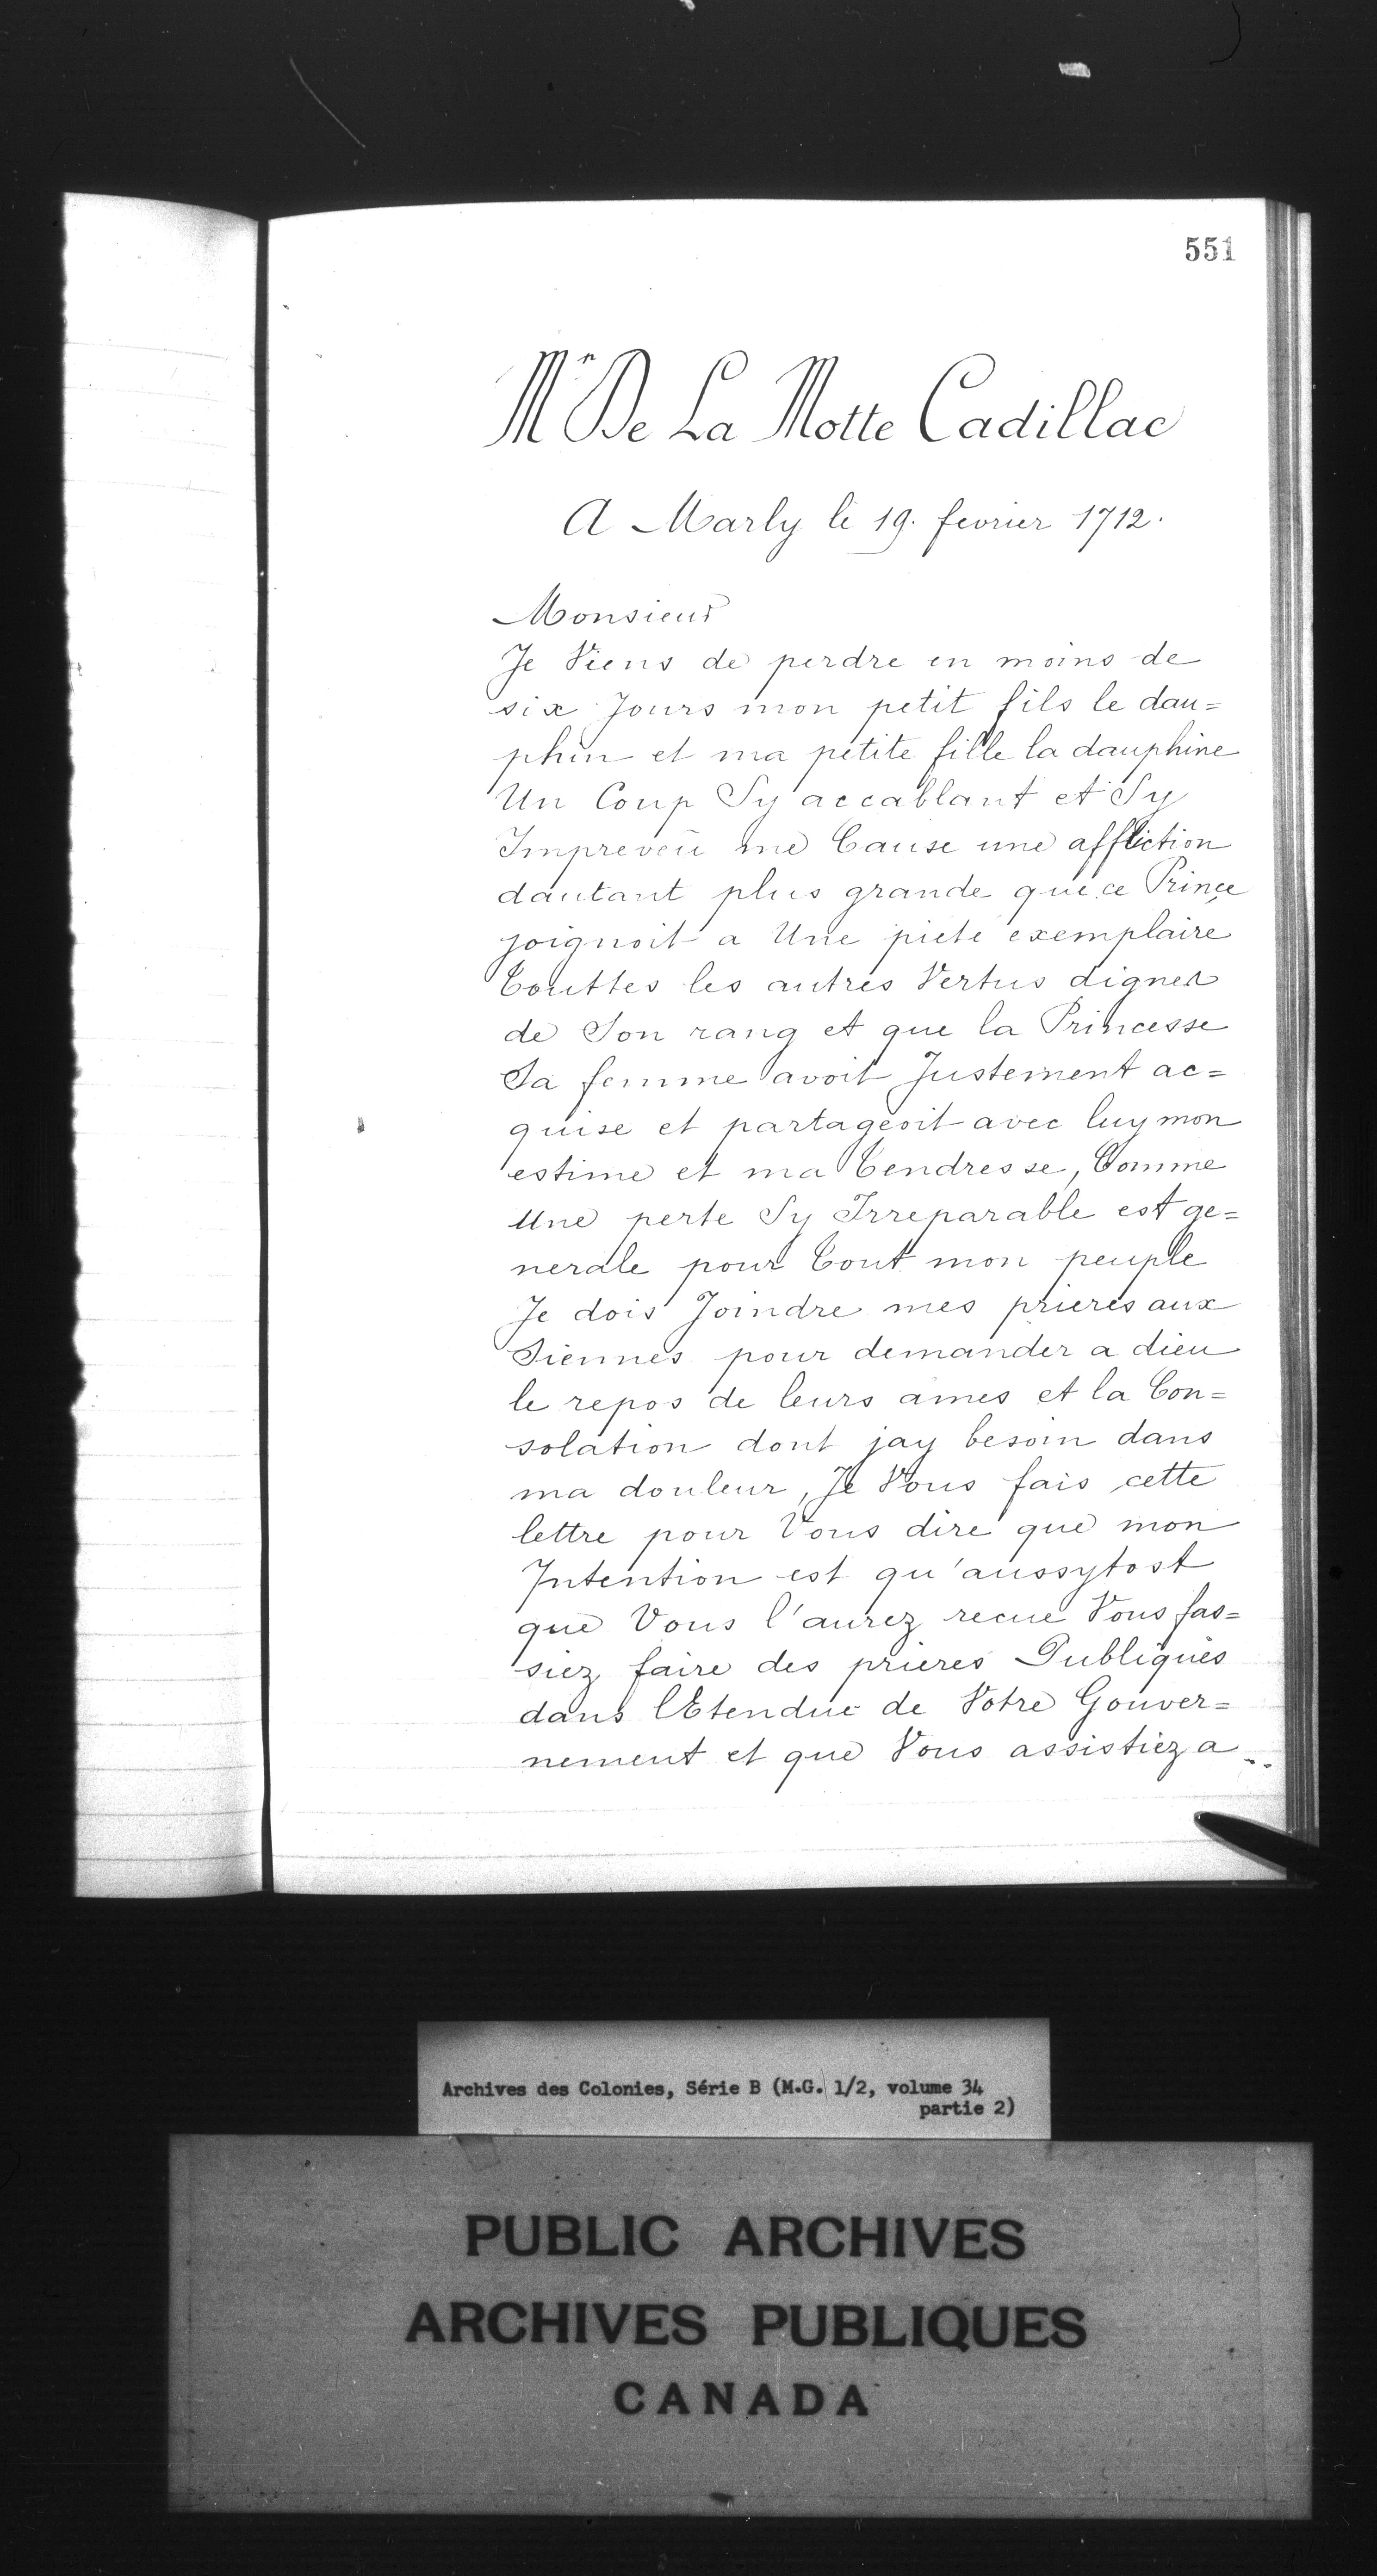 551
Mr De La Motte Cadillac
A Marly le 19. fevrier 1712.
Monsieur
Je Viens de perdre en moins de
six Jours mon petit fils le dau=
phin et ma petite fille la dauphine
Un Coup Sy accablant et Sy
Impreveü me Cause une affliction
dautant plus grande que ce Prince
joignoit a Une pieté exemplaire
Touttes les autres Vertus dignes
de Son rang et que la Princesse
Sa femme avoit Justement ac=
quise et partageoit avec luy mon
estime et ma Tendresse, Comme
Une perte Sy Irreparable est ge=
nerale pour Tout mon peuple
Je dois Joindre mes prieres aux
Siennes pour demander a dieu
le repos de leurs ames et la Con=
solation dont jay besoin dans
ma douleur, Je Vous fais cette
lettre pour Vous dire que mon
Intention est qu'aussytost
que Vous l'aurez recue Vous fas=
siez faire des prieres Publiques
dans lEtendue de Votre Gouver=
nement et que Vous assistiez a ...
Archives des Colonies, Série B (M.G. 1/2, volume 34
partie 2)
PUBLIC ARCHIVES
ARCHIVES PUBLIQUES
CANADA